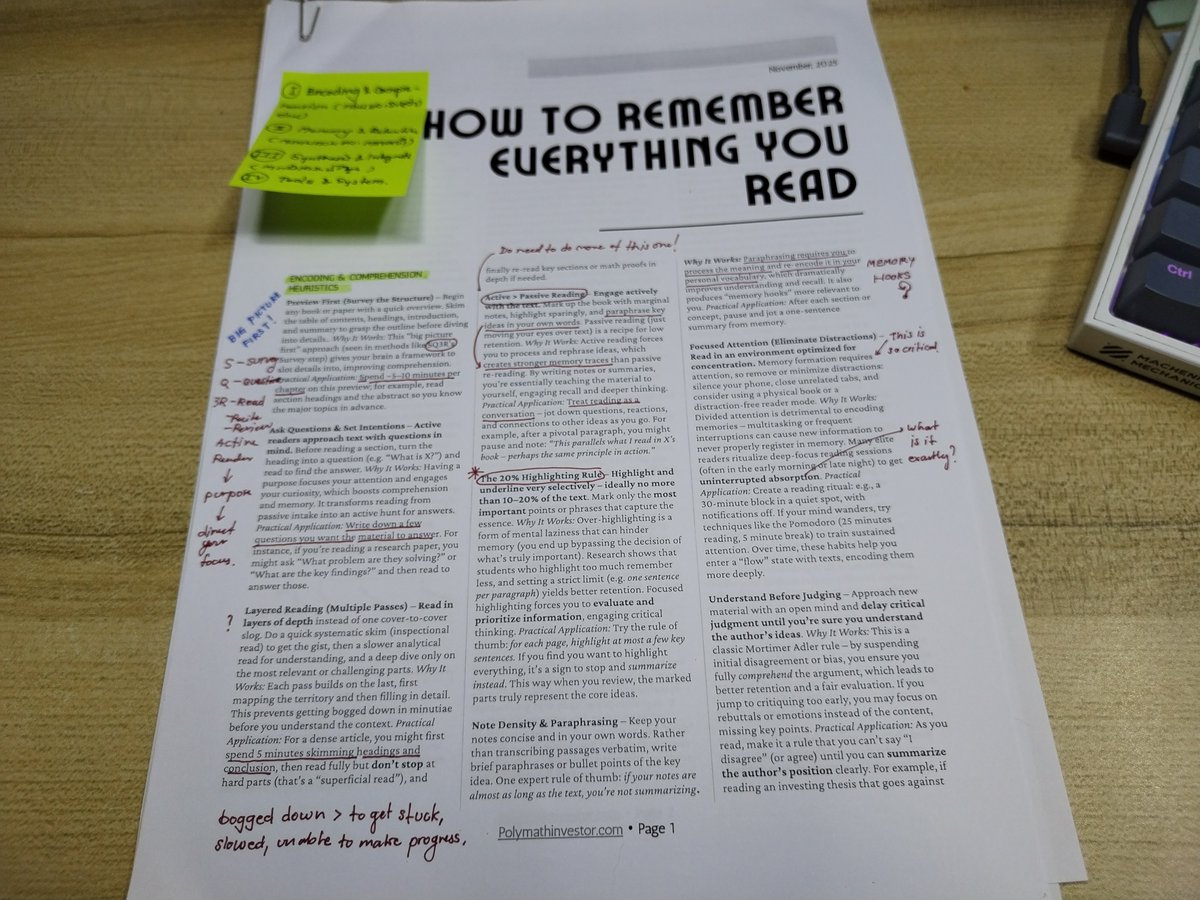 November, 2025
HOW TO REMEMBER
EVERYTHING YOU
READ
I Encoding & Compre-
hension
II Memory &
III Synthesis &
IV Tools & System.
ENCODING & COMPREHENSION
HEURISTICS
BIG PICTURE
FIRST!
Preview First (Survey the Structure) – Begin
any book or paper with a quick overview. Skim
the table of contents, headings, introduction,
and summary to grasp the outline before diving
into details. Why It Works: This "big picture
first" approach (seen in methods like SQ3R's
survey step) gives your brain a framework to
slot details into, improving comprehension.
Practical Application: Spend ~5–10 minutes per
chapter on this preview; for example, read
section headings and the abstract so you know
the major topics in advance.
S – survey
Q – Question
3R – Read
– Recite
– Review
Active
Reader
↓
purpose
↓
direct
your
focus.
Ask Questions & Set Intentions – Active
readers approach text with questions in
mind. Before reading a section, turn the
heading into a question (e.g. "What is X?") and
read to find the answer. Why It Works: Having a
purpose focuses your attention and engages
your curiosity, which boosts comprehension
and memory. It transforms reading from
passive intake into an active hunt for answers.
Practical Application: Write down a few
questions you want the material to answer. For
instance, if you're reading a research paper, you
might ask "What problem are they solving?" or
"What are the key findings?" and then read to
answer those.
?
Layered Reading (Multiple Passes) – Read in
layers of depth instead of one cover-to-cover
slog. Do a quick systematic skim (inspectional
read) to get the gist, then a slower analytical
read for understanding, and a deep dive only on
the most relevant or challenging parts. Why It
Works: Each pass builds on the last, first
mapping the territory and then filling in detail.
This prevents getting bogged down in minutiae
before you understand the context. Practical
Application: For a dense article, you might first
spend 5 minutes skimming headings and
conclusion, then read fully but don't stop at
hard parts (that's a "superficial read"), and
bogged down > to get stuck,
slowed, unable to make progress.
Do need to do more of this one!
finally re-read key sections or math proofs in
depth if needed.
Active > Passive Reading – Engage actively
with the text. Mark up the book with marginal
notes, highlight sparingly, and paraphrase key
ideas in your own words. Passive reading (just
moving your eyes over text) is a recipe for low
retention. Why It Works: Active reading forces
you to process and rephrase ideas, which
creates stronger memory traces than passive
re-reading. By writing notes or summaries,
you're essentially teaching the material to
yourself, engaging recall and deeper thinking.
Practical Application: Treat reading as a
conversation – jot down questions, reactions,
and connections to other ideas as you go. For
example, after a pivotal paragraph, you might
pause and note: "This parallels what I read in X's
book – perhaps the same principle in action."
*
The 20% Highlighting Rule – Highlight and
underline very selectively – ideally no more
than 10–20% of the text. Mark only the most
important points or phrases that capture the
essence. Why It Works: Over-highlighting is a
form of mental laziness that can hinder
memory (you end up bypassing the decision of
what's truly important). Research shows that
students who highlight too much remember
less, and setting a strict limit (e.g. one sentence
per paragraph) yields better retention. Focused
highlighting forces you to evaluate and
prioritize information, engaging critical
thinking. Practical Application: Try the rule of
thumb: for each page, highlight at most a few key
sentences. If you find you want to highlight
everything, it's a sign to stop and summarize
instead. This way when you review, the marked
parts truly represent the core ideas.
Note Density & Paraphrasing – Keep your
notes concise and in your own words. Rather
than transcribing passages verbatim, write
brief paraphrases or bullet points of the key
idea. One expert rule of thumb: if your notes are
almost as long as the text, you're not summarizing.
Why It Works: Paraphrasing requires you to
process the meaning and re-encode it in your
personal vocabulary, which dramatically
improves understanding and recall. It also
produces "memory hooks" more relevant to
you. Practical Application: After each section or
concept, pause and jot a one-sentence
summary from memory.
MEMORY
HOOKS
Focused Attention (Eliminate Distractions) –
Read in an environment optimized for
concentration. Memory formation requires
attention, so remove or minimize distractions:
silence your phone, close unrelated tabs, and
consider using a physical book or a
distraction-free reader mode. Why It Works:
Divided attention is detrimental to encoding
memories – multitasking or frequent
interruptions can cause new information to
never properly register in memory. Many elite
readers ritualize deep-focus reading sessions
(often in the early morning or late night) to get
uninterrupted absorption. Practical
Application: Create a reading ritual: e.g., a
30-minute block in a quiet spot, with
notifications off. If your mind wanders, try
techniques like the Pomodoro (25 minutes
reading, 5 minute break) to train sustained
attention. Over time, these habits help you
enter a "flow" state with texts, encoding them
more deeply.
This is
so critical
What
is it
exactly?
Understand Before Judging – Approach new
material with an open mind and delay critical
judgment until you're sure you understand
the author's ideas. Why It Works: This is a
classic Mortimer Adler rule – by suspending
initial disagreement or bias, you ensure you
fully comprehend the argument, which leads to
better retention and a fair evaluation. If you
jump to critiquing too early, you may focus on
rebuttals or emotions instead of the content,
missing key points. Practical Application: As you
read, make it a rule that you can't say "I
disagree" (or agree) until you can summarize
the author's position clearly. For example, if
reading an investing thesis that goes against
Polymathinvestor.com • Page 1
Ctrl